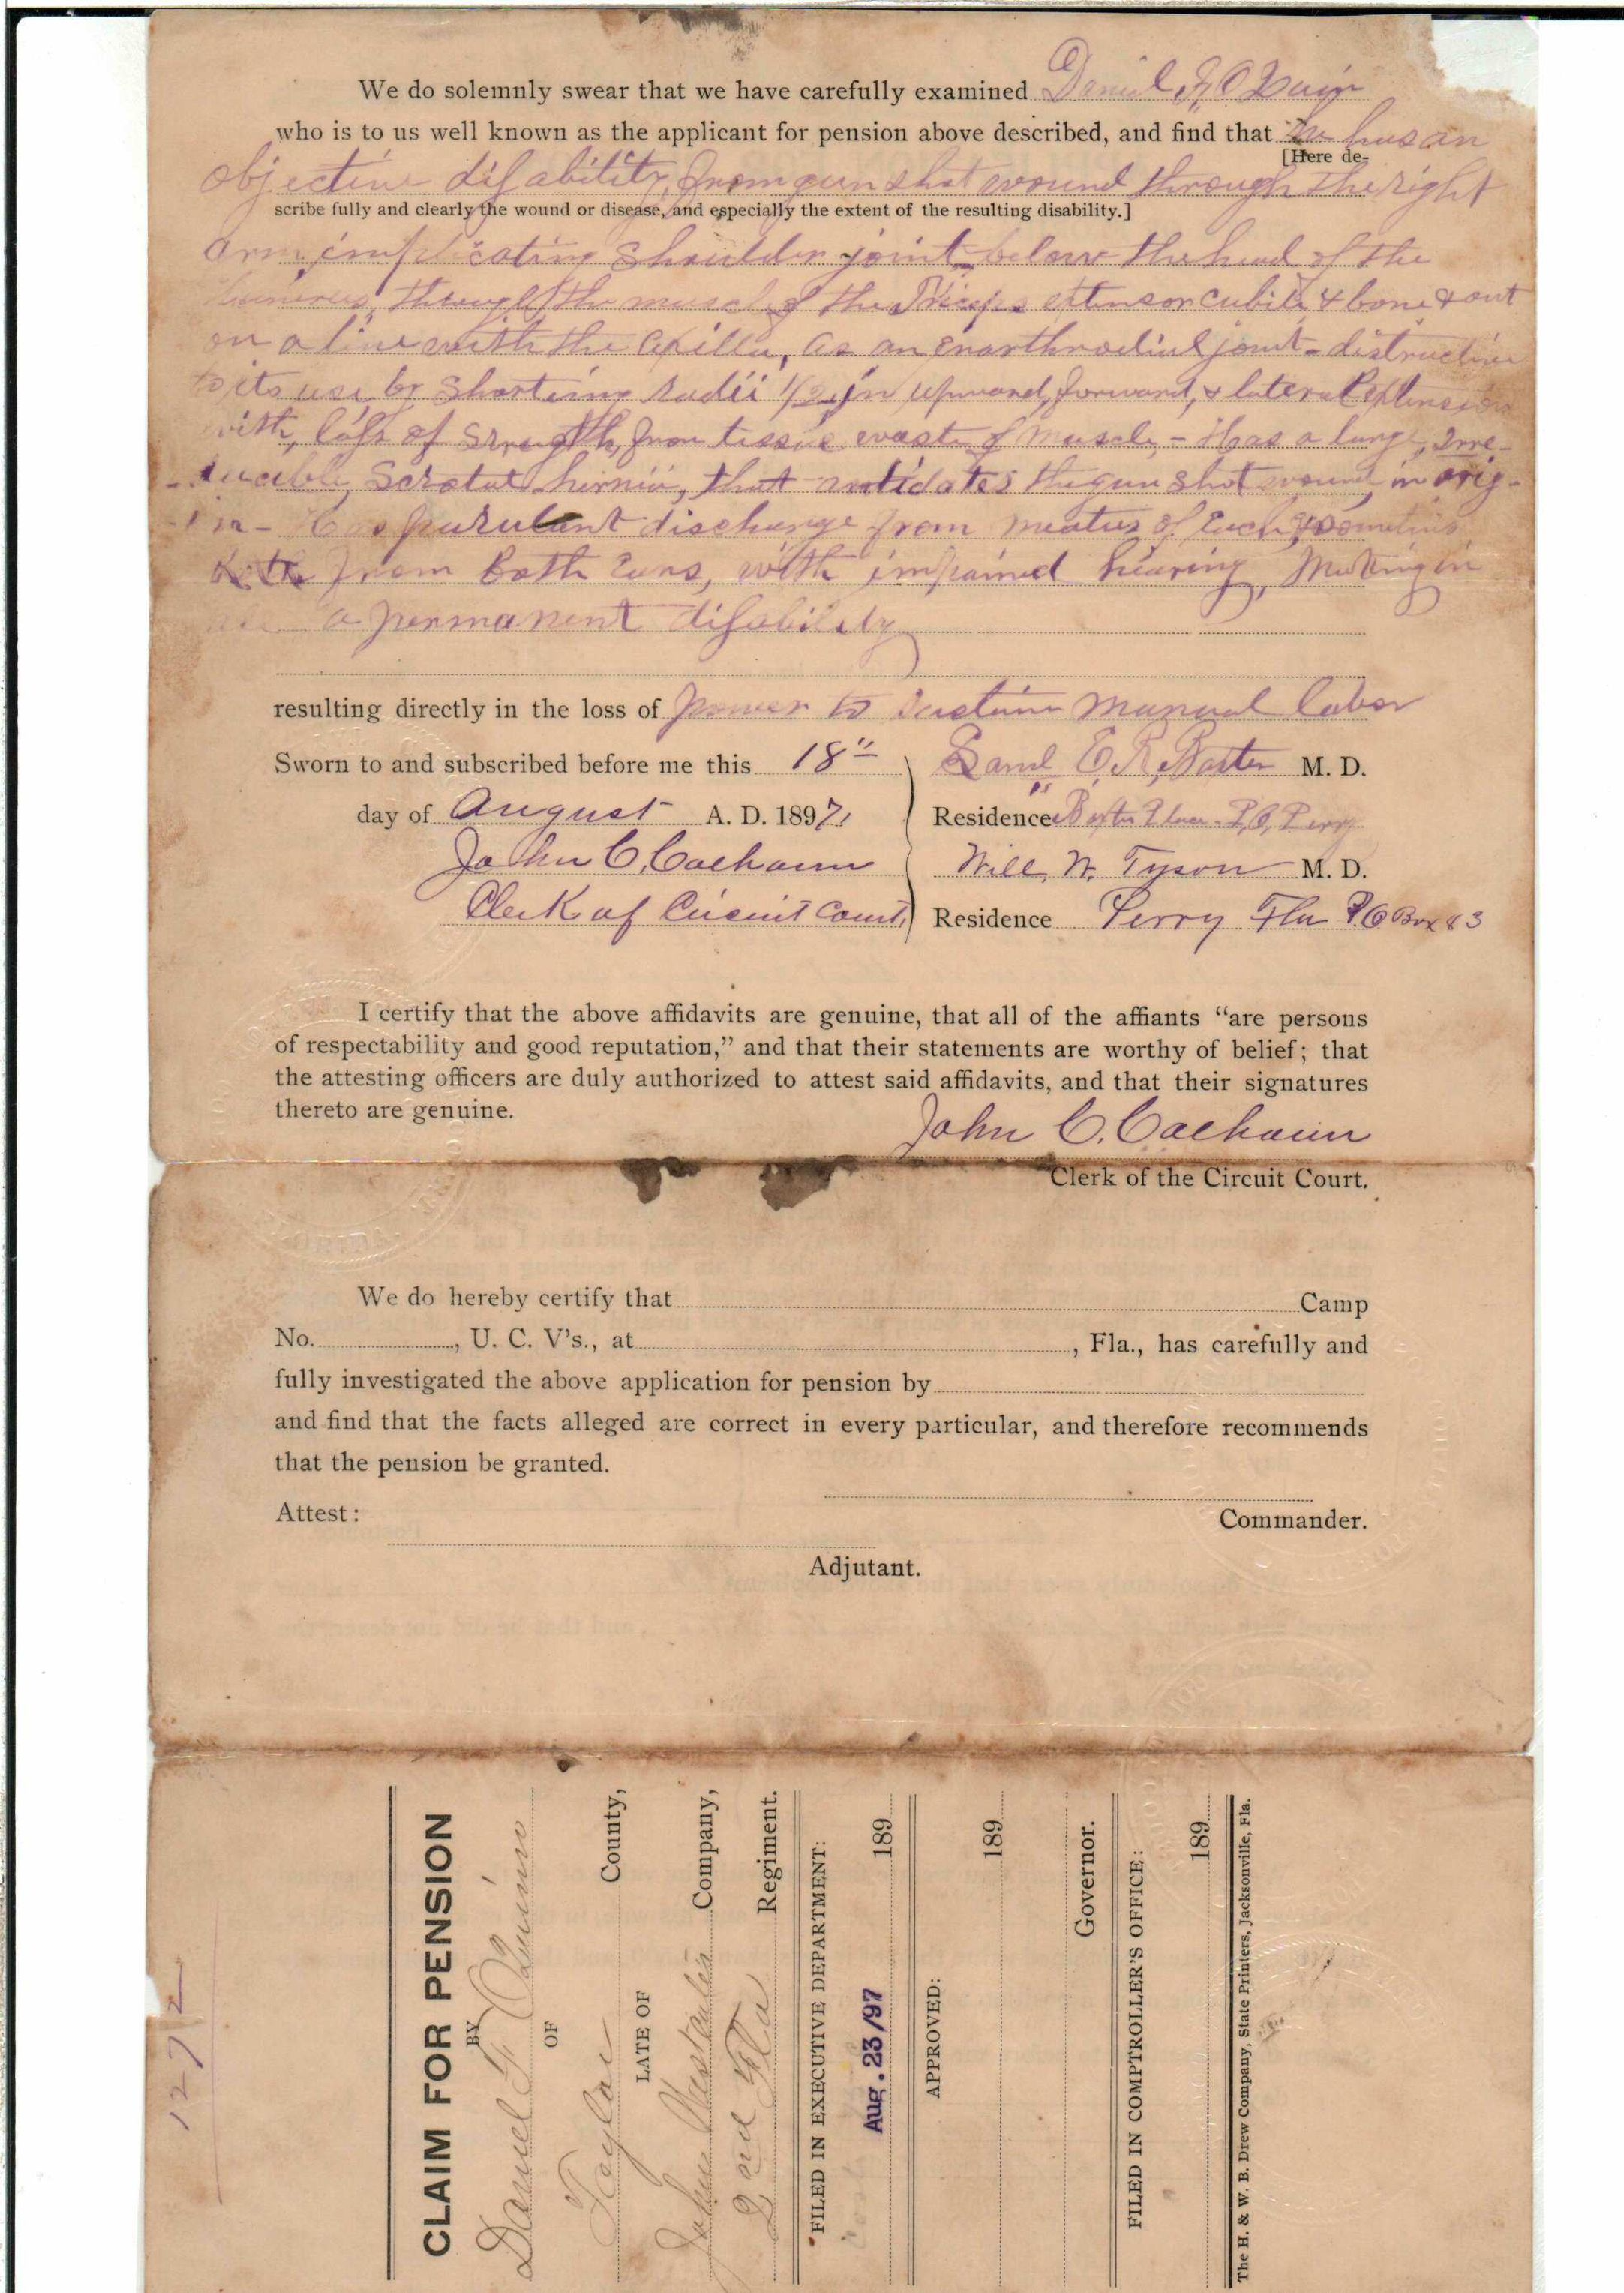 We do solemnly swear that we have carefully examined Daniel F. O'Quin
who is to us well known as the applicant for pension above described, and find that he has an
[Here de-
objective disability, from gun shot wound through the right
scribe fully and clearly the wound or disease, and especially the extent of the resulting disability.]
arm, implicating shoulder joint below the head of the
Humerus, through the muscle of the Triceps extensor cubiti, & bone & out
on a line with the axilla, as an enarthrodial joint - distructive
to its use by shorting radii 1/2 in upward, forward, & lateral extension
with, loss of strength, from tissue waste of muscle, - Has a large, irre-
- ducible, Scrotal hernia, that antidates the gun shot wound in orig-
- in - Has purulant discharge from meatus of each, & sometimes
from both Ears, with impaired hearing, Making in
all a permanent disability
resulting directly in the loss of power to sustain manual labor
Sworn to and subscribed before me this 18" Saml E. R. M. D.
day of August A. D. 1897, Residence Place. P, O, Perry
John C. Calhoun Will, W. Tyson M. D.
Clerk of Circuit Court, Residence Perry Fla P.O Box 83
I certify that the above affidavits are genuine, that all of the affiants "are persons
of respectability and good reputation," and that their statements are worthy of belief; that
the attesting officers are duly authorized to attest said affidavits, and that their signatures
thereto are genuine.
John C. Calhoun
Clerk of the Circuit Court.
We do hereby certify that Camp
No. , U. C. V's., at , Fla., has carefully and
fully investigated the above application for pension by
and find that the facts alleged are correct in every particular, and therefore recommends
that the pension be granted.
Attest: Commander.
Adjutant.
1272
CLAIM FOR PENSION
BY
Daniel F O'Quinn
OF
Taylor County,
LATE OF
John Company,
2nd Fla Regiment.
FILED IN EXECUTIVE DEPARTMENT:
Aug. 23/97 189
APPROVED:
189
Governor.
FILED IN COMPTROLLER'S OFFICE:
189
The H. & W. B. Drew Company, State Printers, Jacksonville, Fla.